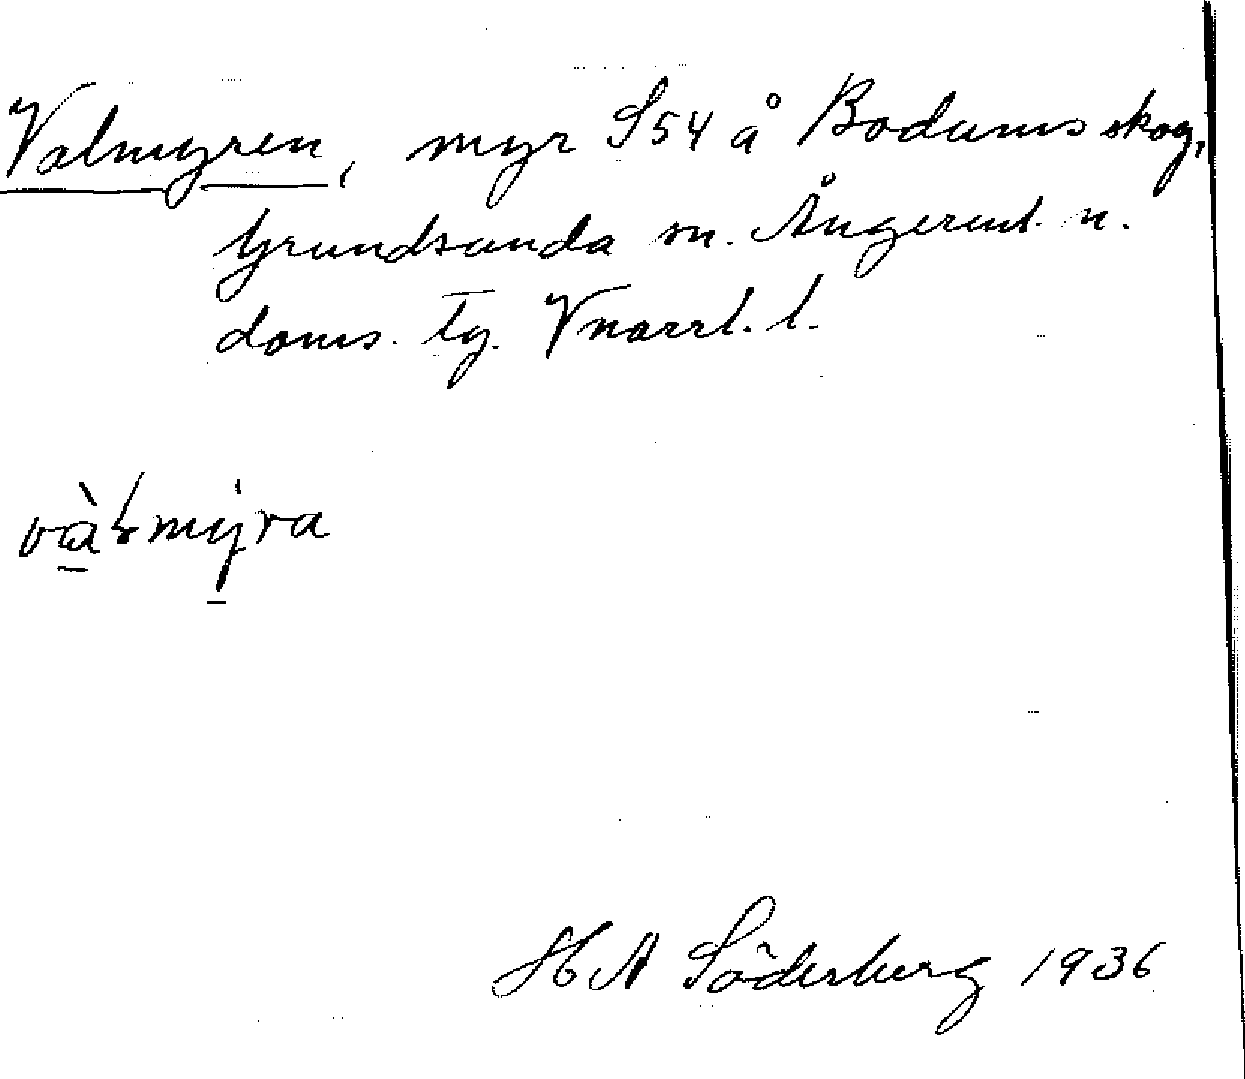 Valmyren, myr S54 å Bodums skog,
Grundsunda sn. Ångerml. n.
doms. tg. Vnorrl. l.
vàłmýra
H A Söderberg 1936